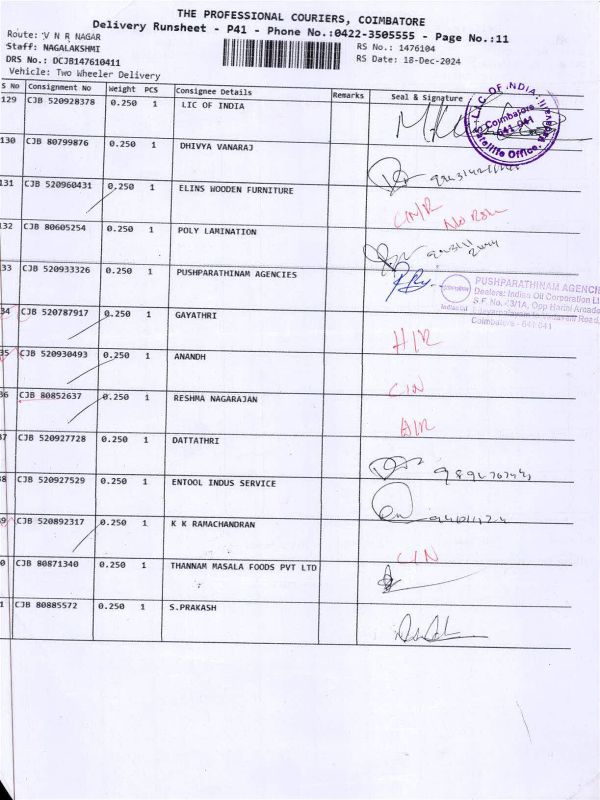 THE PROFESSIONAL COURIERS, COIMBATORE
Delivery Runsheet - P41 - Phone No.:0422-3505555 - Page No.:11
Route: V N R NAGAR
Staff: NAGALAKSHMI RS No.: 1476104
DRS No.: DCJB147610411 RS Date: 18-Dec-2024
Vehicle: Two Wheeler Delivery
S No Consignment No Weight PCS Consignee Details Remarks Seal & Signature
129 CJB 520928378 0.250 1 LIC OF INDIA
LIC OF INDIA
Coimbatore
641 041
Satellite Office,
130 CJB 80799876 0.250 1 DHIVYA VANARAJ
131 CJB 520960431 0.250 1 ELINS WOODEN FURNITURE
132 CJB 80605254 0.250 1 POLY LAMINATION
33 CJB 520933326 0.250 1 PUSHPARATHINAM AGENCIES
PUSHPARATHINAM AGENCI
Dealers: Indian Oil Corporation Lt
S.F. No. 3/1A, Opp Harini Arcade
Road,
Coimbatore - 641 041
IndianOil
34 CJB 520787917 0.250 1 GAYATHRI
H/R
35 CJB 520930493 0.250 1 ANANDH
C/N
36 CJB 80852637 0.250 1 RESHMA NAGARAJAN
37 CJB 520927728 0.250 1 DATTATHRI
8 CJB 520927529 0.250 1 ENTOOL INDUS SERVICE
9 CJB 520892317 0.250 1 K K RAMACHANDRAN
C/N
0 CJB 80871340 0.250 1 THANNAM MASALA FOODS PVT LTD
1 CJB 80885572 0.250 1 S.PRAKASH